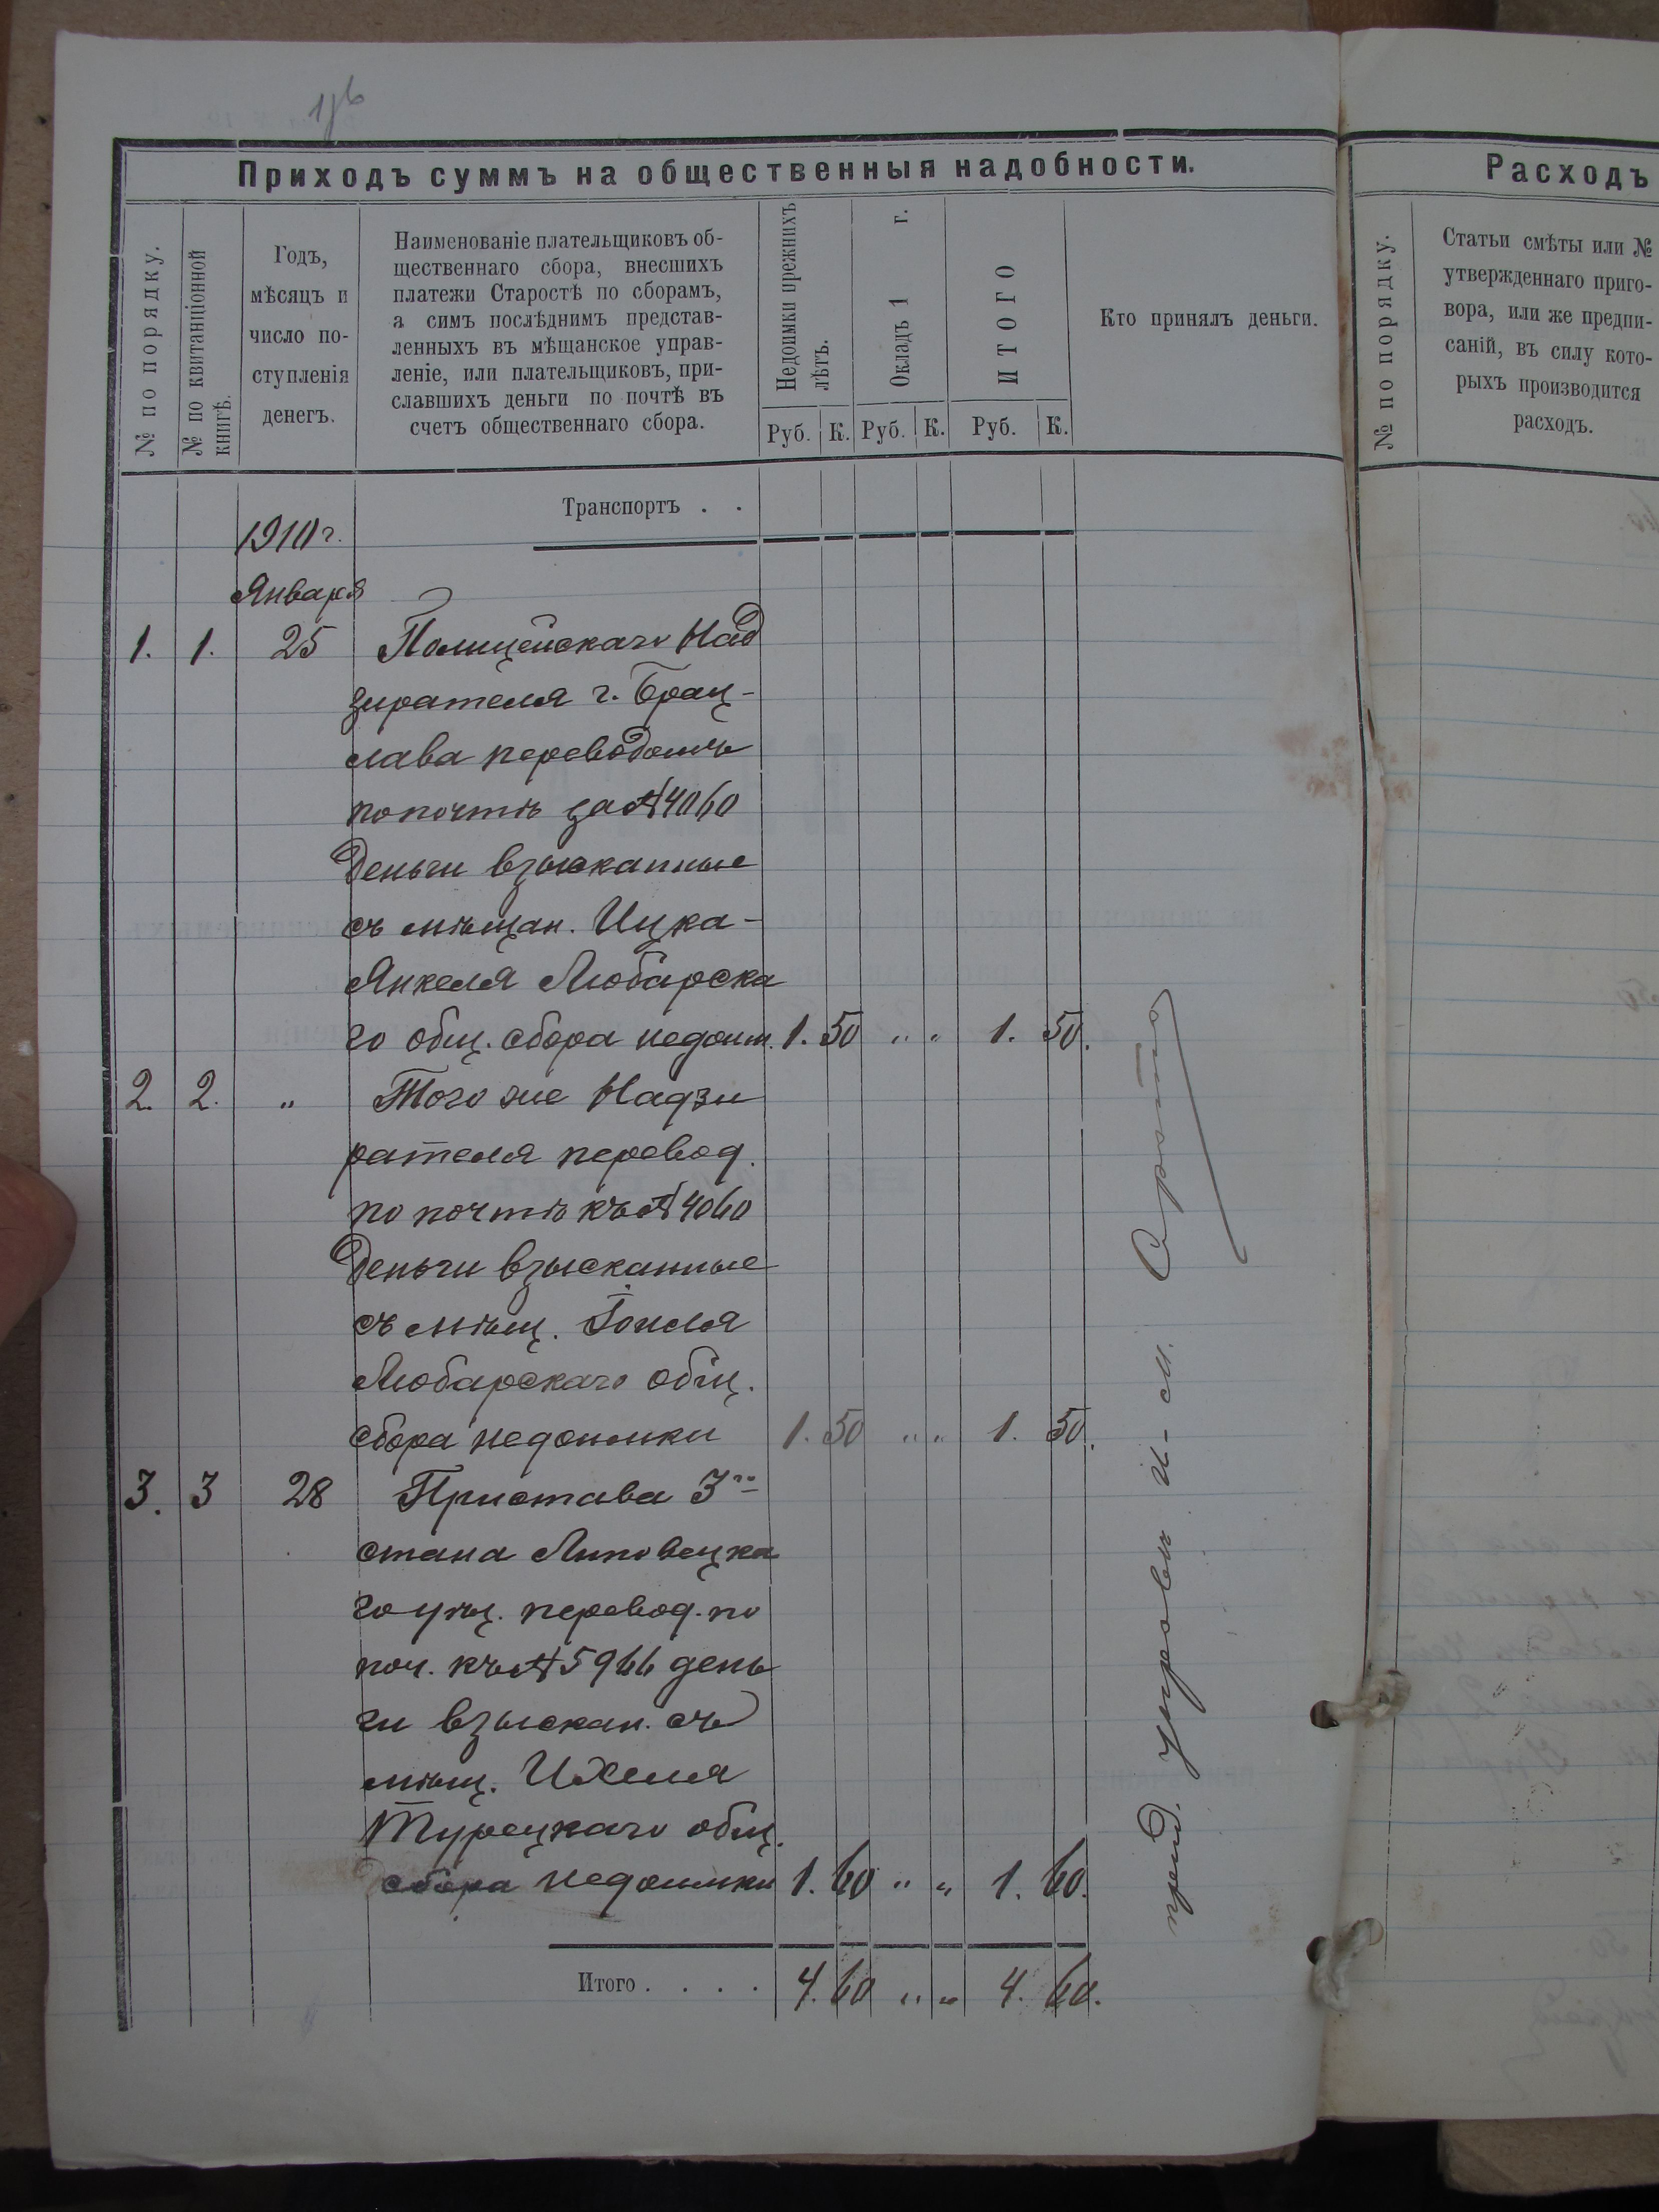 Приходъ суммъ на общественныя надобности.
№ по порядку.
№ по квитанціонной
книгѣ.
Годъ,
мѣсяцъ и
число по-
ступленія
денегъ.
Наименованіе плательщиковъ об-
щественнаго сбора, внесшихъ
платежи Старостѣ по сборамъ,
а симъ послѣднимъ представ-
ленныхъ въ мѣщанское управ-
леніе, или плательщиковъ, при-
славшихъ деньги по почтѣ въ
счетъ общественнаго сбора.
Недоимки прежнихъ
лѣтъ.
Окладъ 1 г.
ИТОГО
Руб. К. Руб. К. Руб. К.
Кто принялъ деньги.
Транспортъ . .
1910 г.
Января
1. 1. 25 Полицейскаго Над
зирателя г. Брац-
лава переводомъ
по почтѣ за № 4060
деньги взысканные
съ мѣщан. Ицка-
Янкеля Любарска
го общ. сбора недоим. 1. 50 „ „ 1. 50.
2. 2. „ Того же Надзи
рателя перевод.
по почтѣ къ № 4060
деньги взысканные
съ мѣщ.
Любарскаго общ.
сбора недоимки 1. 50 „ „ 1. 50.
3. 3 28 Пристава 3го
стана Липовецка
го уѣз. перевод. по
поч. къ № 5966 день
ги взыскан. съ
мѣщ. Ихеля
Турецкаго общ.
сбора недоимки 1. 60 „ „ 1. 60.
Итого . . . . 4. 60 „ „ 4. 60.
Расходъ
№ по порядку.
Статьи смѣты или №
утвержденнаго приго-
вора, или же предпи-
саній, въ силу кото-
рыхъ производится
расходъ.